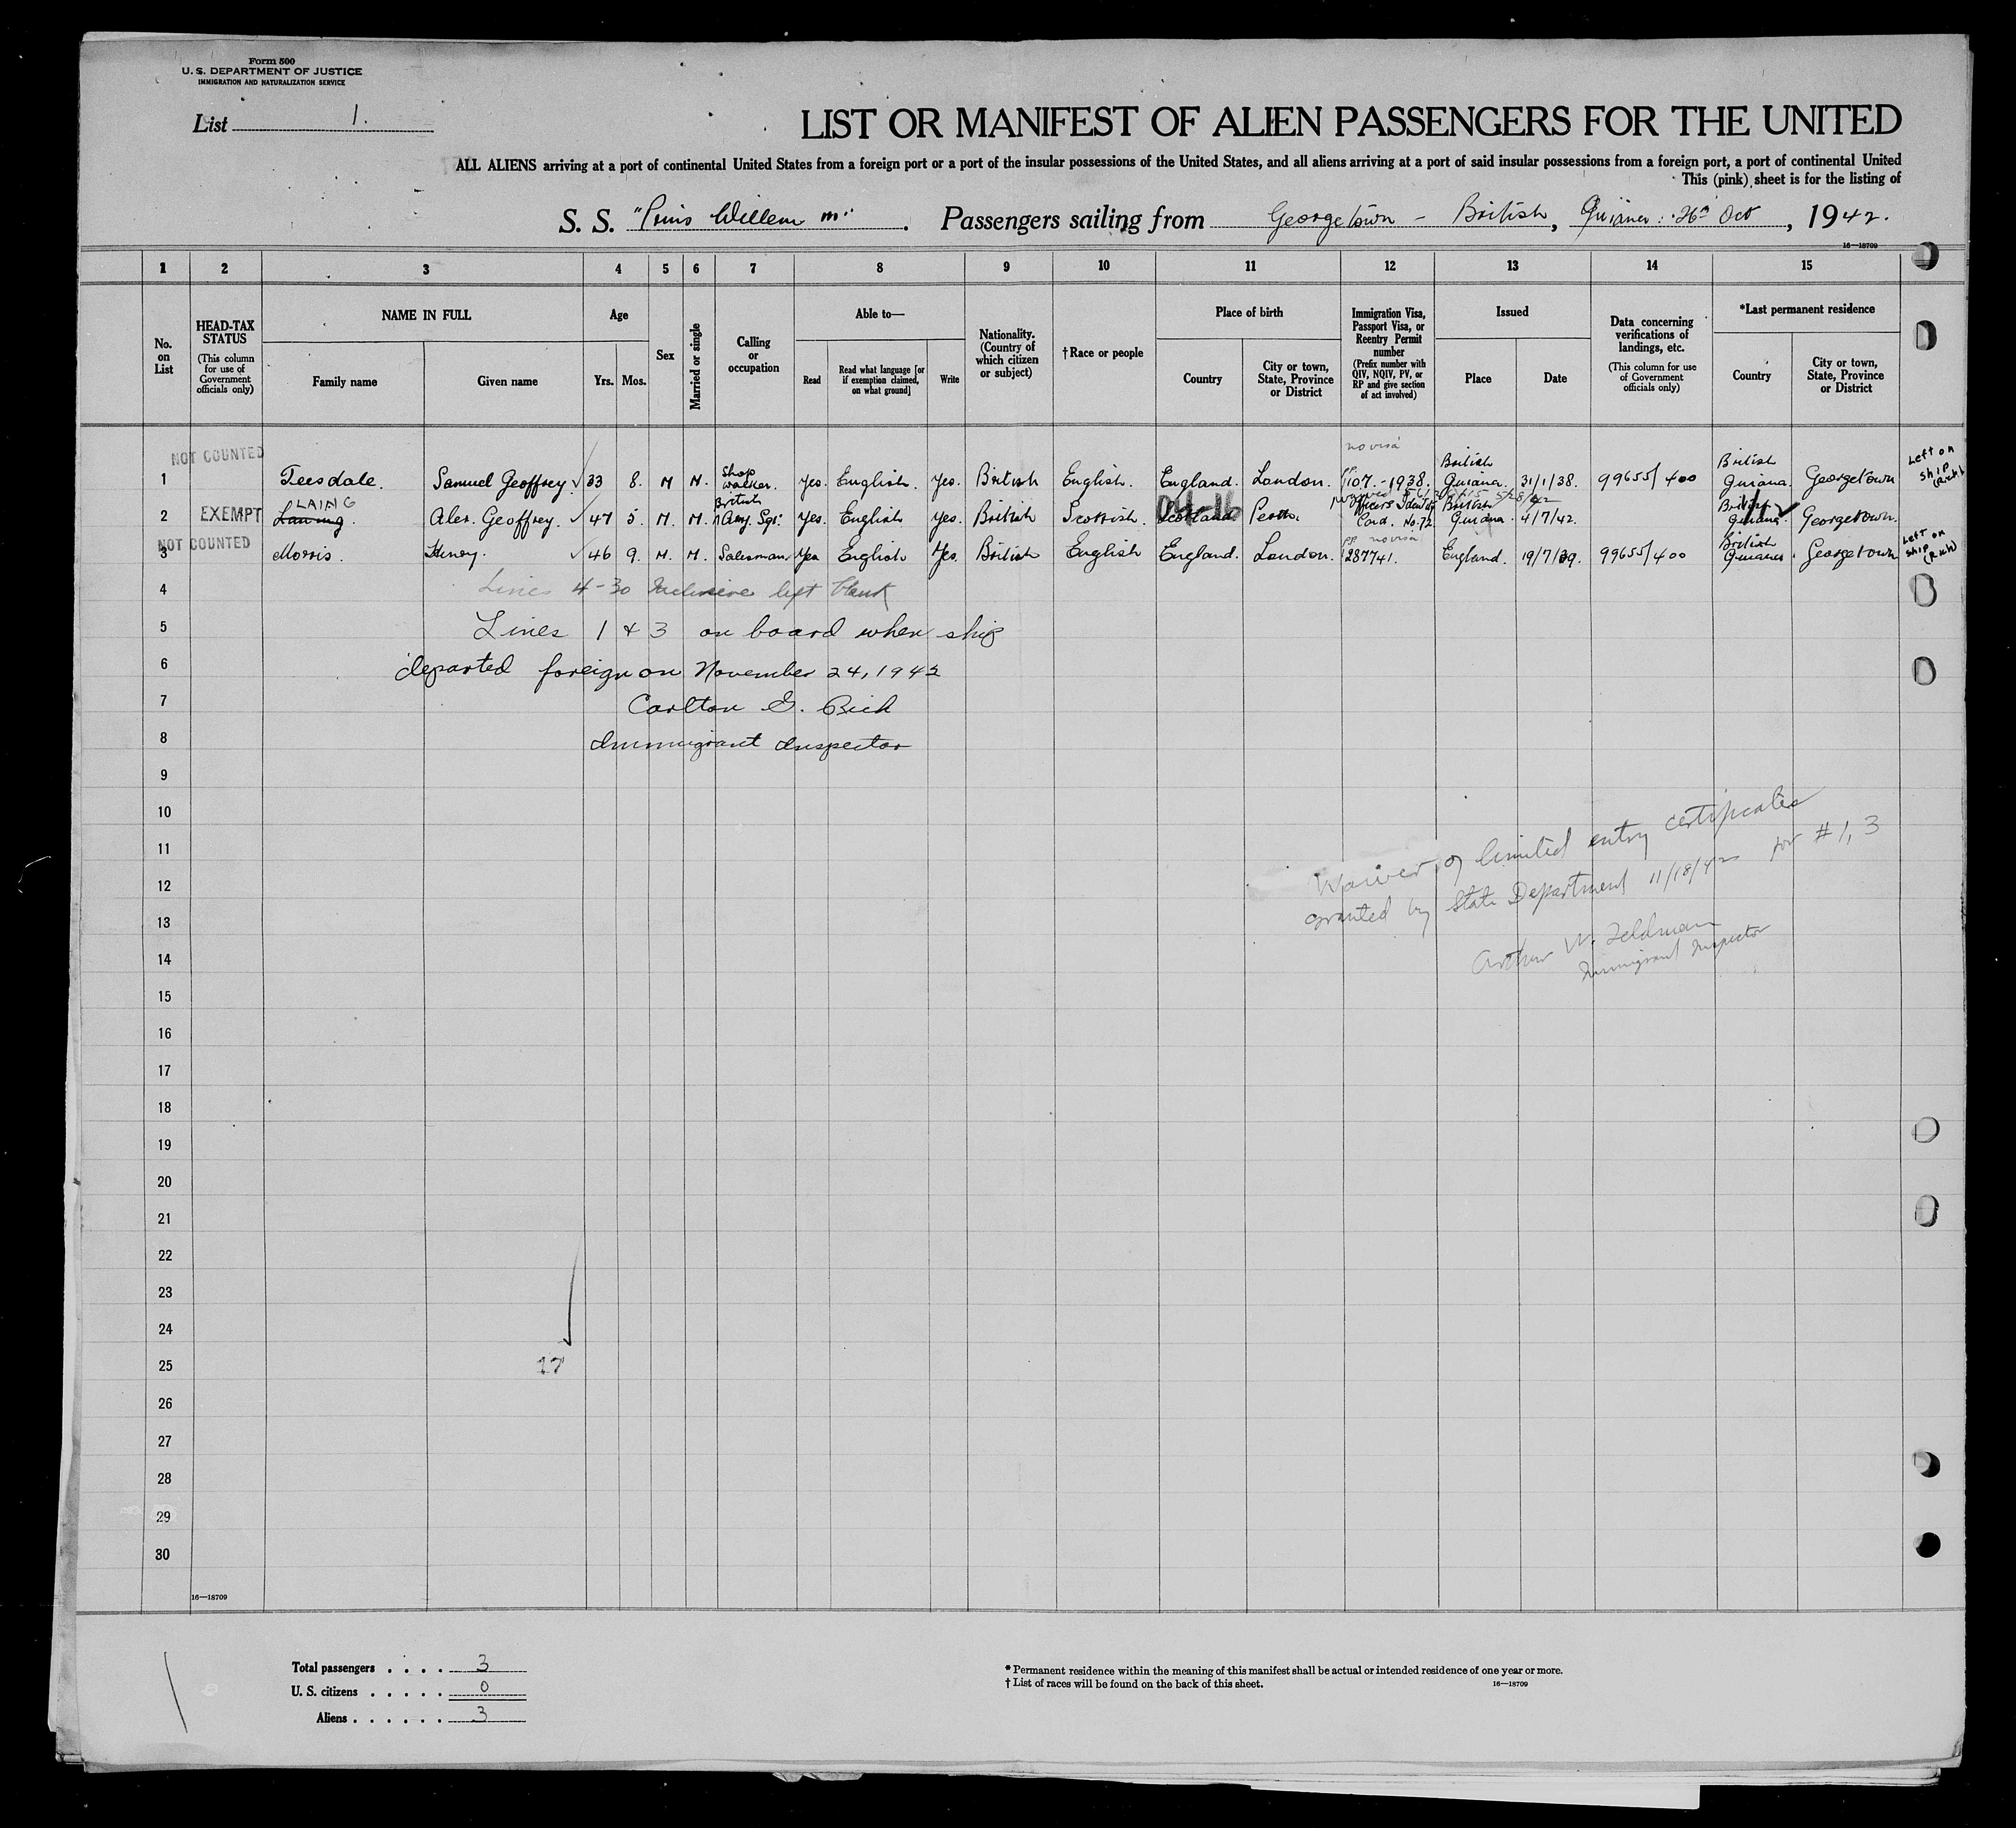 Form 500
U. S. DEPARTMENT OF JUSTICE
IMMIGRATION AND NATURALIZATION SERVICE
List 1.
LIST OR MANIFEST OF ALIEN PASSENGERS FOR THE UNITED
ALL ALIENS arriving at a port of continental United States from a foreign port or a port of the insular possessions of the United States, and all aliens arriving at a port of said insular possessions from a foreign port, a port of continental United
This (pink) sheet is for the listing of
S. S. "Prins Willem III". Passengers sailing from Georgetown - British, Oct, 1942.
16—18709
1 2 3 4 5 6 7 8 9 10 11 12 13 14 15
No. on List
HEAD-TAX STATUS (This column for use of Government officials only)
NAME IN FULL
Family name
Given name
Age
Yrs. Mos.
Sex
Married or single
Calling or occupation
Able to—
Read
Read what language [or if exemption claimed, on what ground]
Write
Nationality. (Country of which citizen or subject)
†Race or people
Place of birth
Country
City or town, State, Province or District
Immigration Visa, Passport Visa, or Reentry Permit number (Prefix number with QIV, NQIV, PV, or RP and give section of act involved)
Issued
Place
Date
Data concerning verifications of landings, etc. (This column for use of Government officials only)
*Last permanent residence
Country
City or town, State, Province or District
1 NOT COUNTED Teesdale. Samuel Geoffrey. 33 8. M M. Shop walker. Yes. English. Yes. British English. England. London. no visa PP 107.-1938. British Guiana. 31/1/38. 99655/400 British Guiana. Georgetown Left on ship (Rich)
2 EXEMPT LAING Alex. Geoffrey. 47 5. M. M. British Army. Sgt. Yes. English Yes. British Scottish. Scotland. 04-16 Perth. Officers Ident. Card. No. 72 British Guiana. 4/7/42. British Guiana Georgetown.
3 NOT COUNTED Morris. Henry. 46 9. M. M. Salesman. Yes English Yes. British English England. London. PP no visa 287741. England. 19/7/39. 99655/400 British Guiana. Georgetown Left on ship (Rich)
4 Lines 4-30 Inclusive left blank
5 Lines 1 & 3 on board when ship
6 departed foreign on November 24, 1942
7 Carlton G. Rich
8 Immigrant Inspector
9
10
11
12
13
14
15
16
17
18
19
20
21
22
23
24
25
26
27
28
29
30
Waiver of limited entry certificates
granted by State Department 11/18/42 for #1, 3
Arthur W. Feldman
Immigrant Inspector
17
16—18709
Total passengers . . . . 3
U. S. citizens . . . . . 0
Aliens . . . . . . 3
* Permanent residence within the meaning of this manifest shall be actual or intended residence of one year or more.
† List of races will be found on the back of this sheet.
16—18709